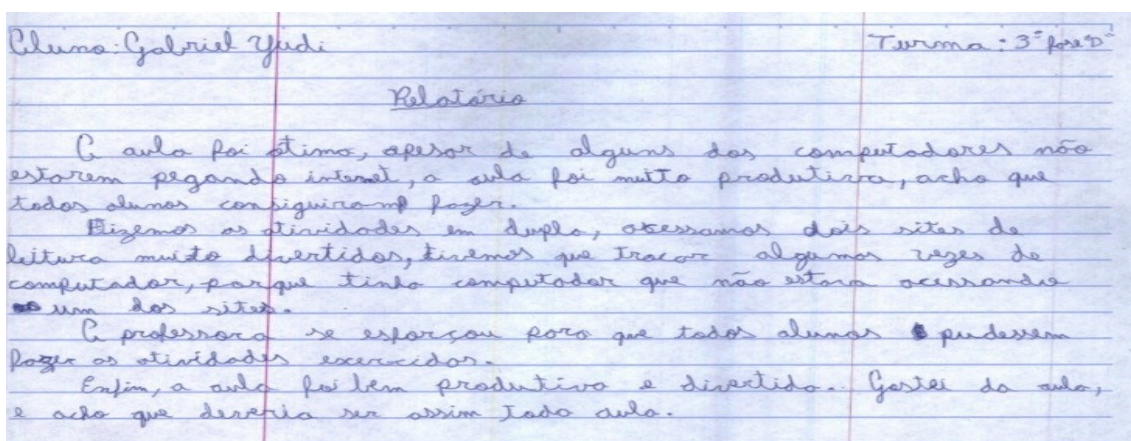 Aluno: Gabriel Yudi Turma: 3ª fase D
Relatório
A aula foi otima, apesar de alguns dos computadores não
estarem pegando internet, a aula foi muito produtiva, acho que
todos alunos consiguiram fazer.
Fizemos as atividades em dupla, acessamos dois sites de
leitura muito divertidos, tivemos que trocar algumas vezes de
computador, porque tinha computador que não estava acessando
um dos sites.
A professora se esforçou para que todos alunos pudessem
fazer as atividades exercidas.
Enfim, a aula foi bem produtiva e divertida.. Gostei da aula,
e acho que deveria ser assim toda aula.